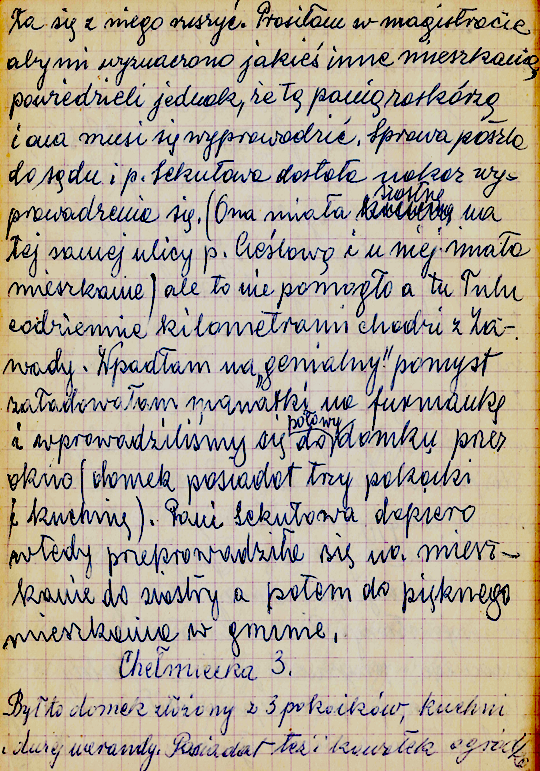 ża się z niego ruszyć. Prosiłam w magistracie
aby mi wyznaczono jakieś inne mieszkanie,
powiedzieli jednak, że tą panią zaskórzą
i ona musi się wyprowadzić. Sprawa poszła
do sądu i p. Sekułowa dostała nakaz wy-
prowadzenia się. (Ona miała siostrę na
tej samej ulicy p. Cieślową i u niej miała
mieszkanie) ale to nie pomogło a tu Tulu
codziennie kilometrami chodzi z Za-
wady. Wpadłam na „genialny" pomysł
załadowałam manatki na furmankę
i wprowadziliśmy się do połowy domku przez
okno (domek posiadał trzy pokoiki
i kuchnię). Pani Sekułowa dopiero
wtedy przeprowadziła się na miesz-
kanie do siostry a potem do pięknego
mieszkania w gminie.
Chełmiecka 3.
Był to domek złożony z 3 pokoików, kuchni
i dużej werandy. Posiadał też i kawałek ogródka